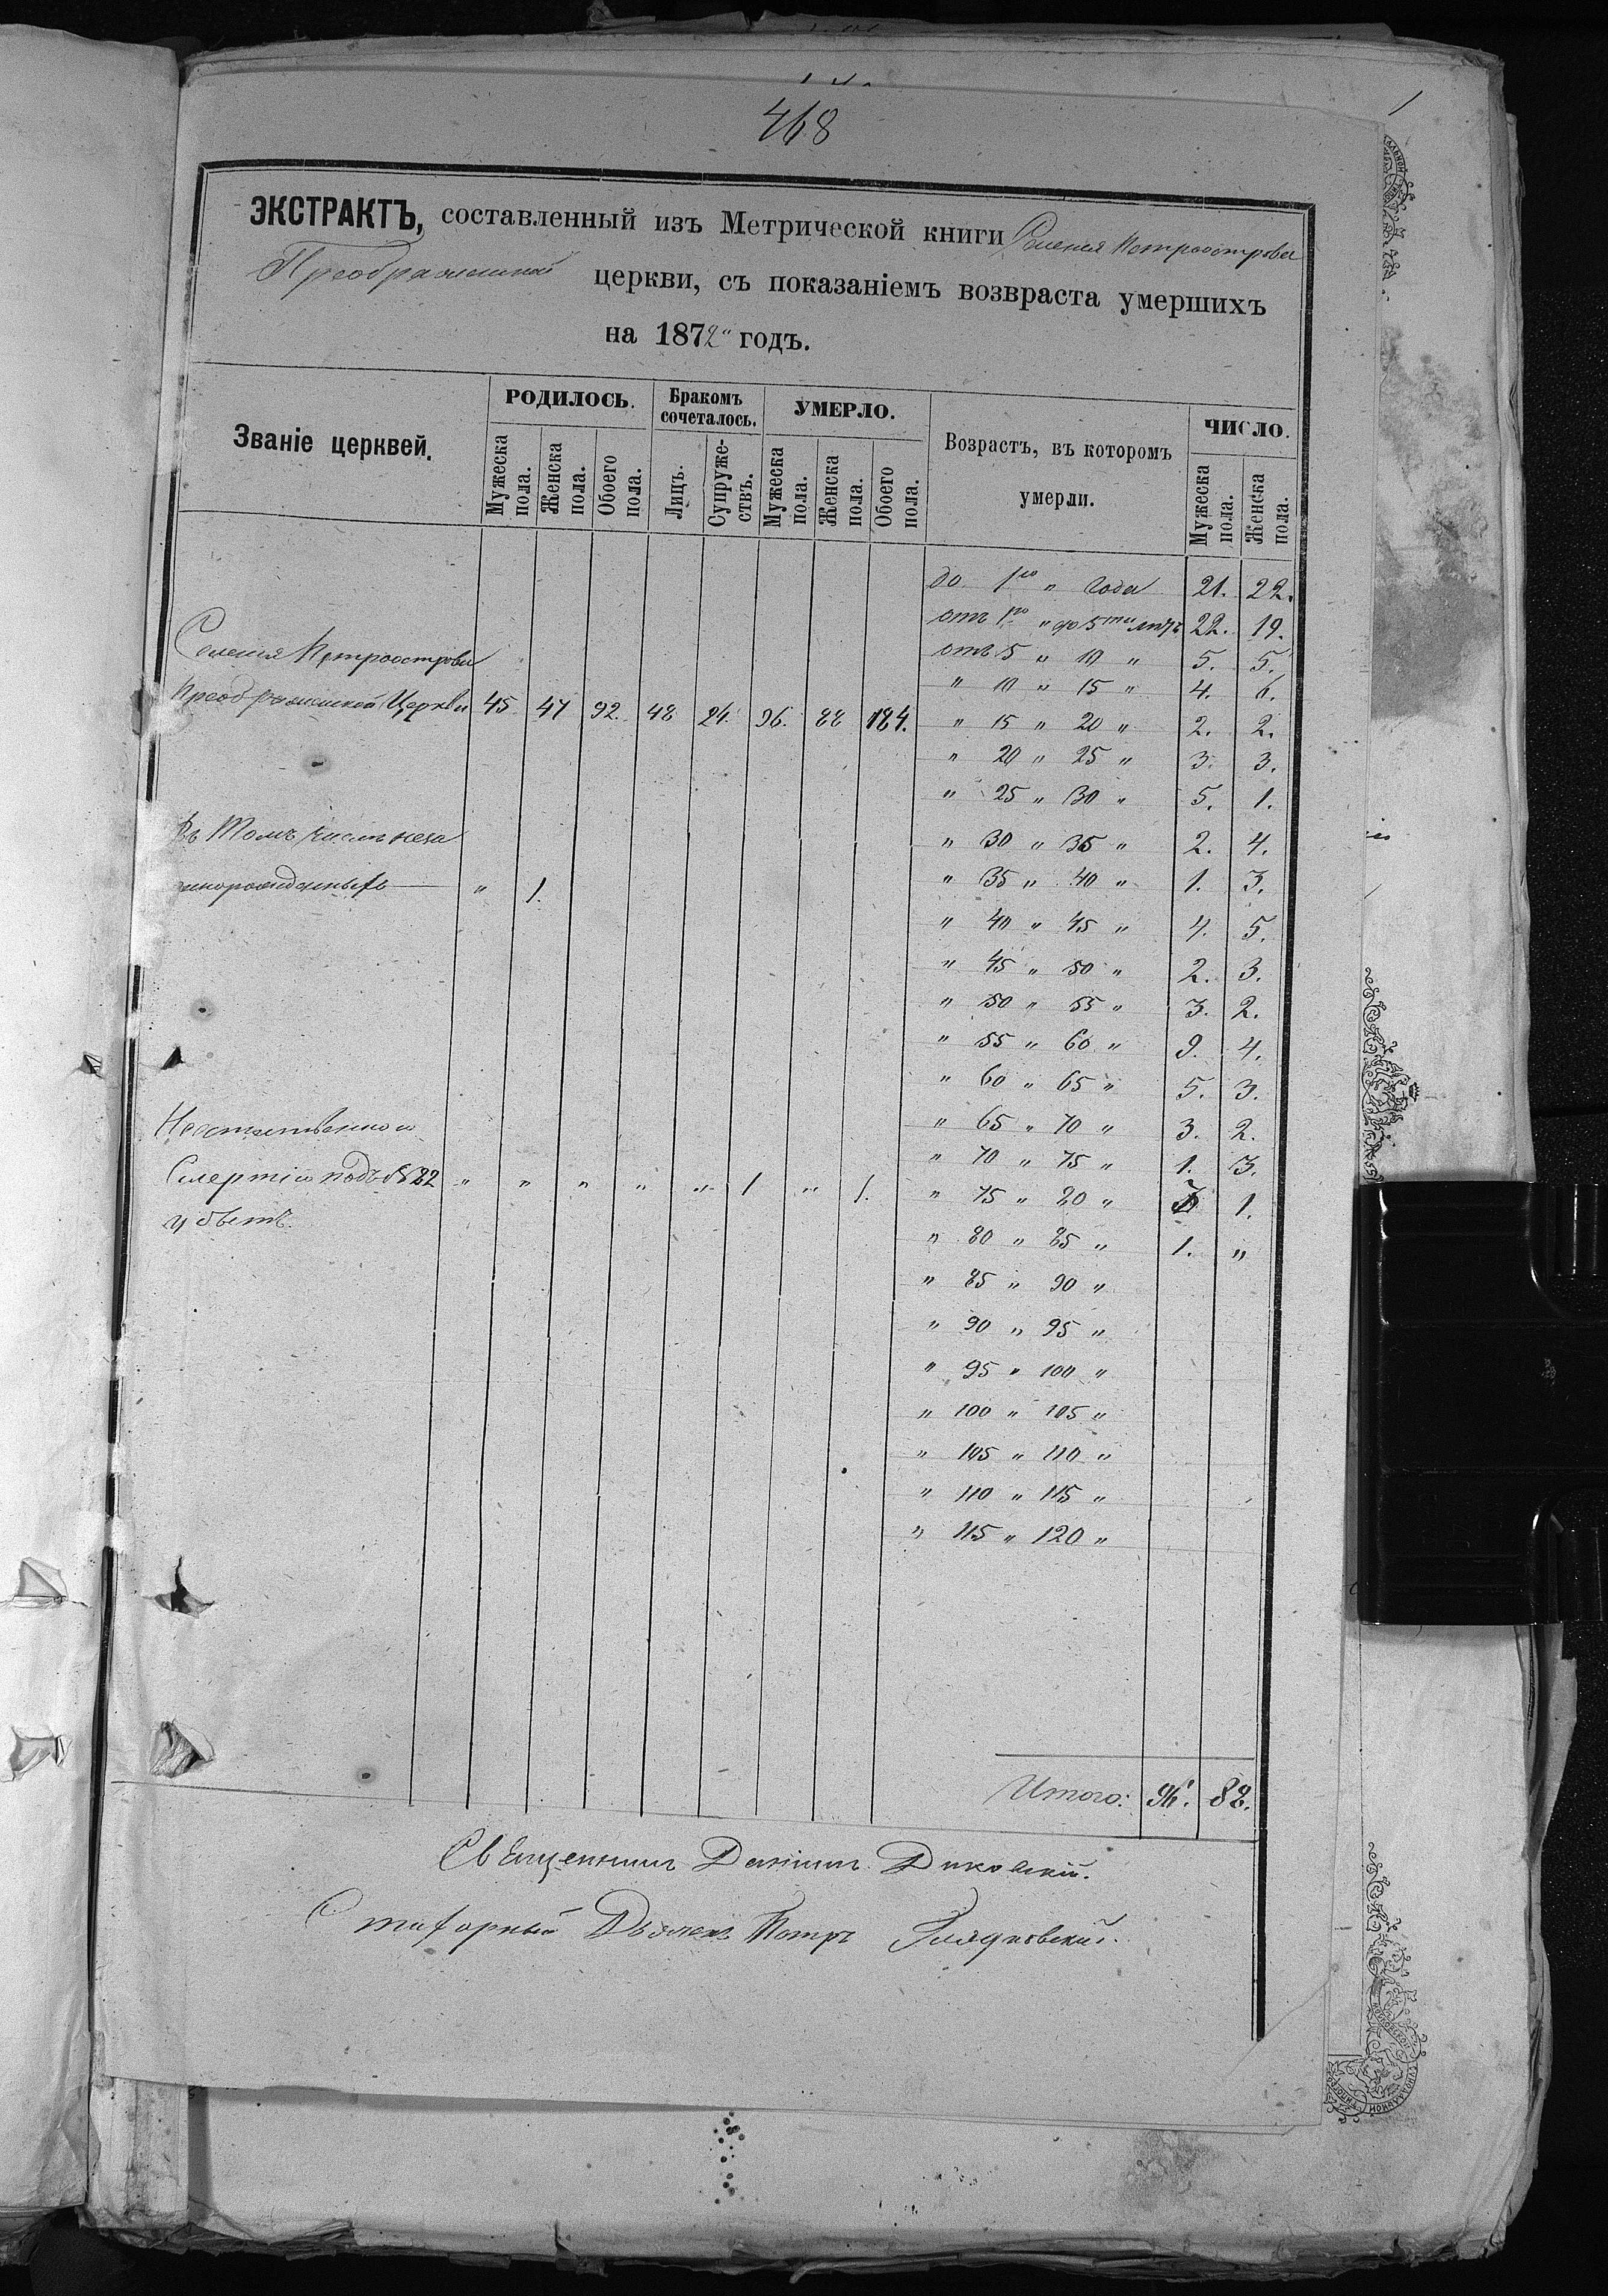 468
ЭКСТРАКТЪ, составленный изъ Метрической книги Селенія Петроострова
Преображенской церкви, съ показаніемъ возвраста умершихъ
на 1872 годъ.
Званіе церквей.
РОДИЛОСЬ.
Бракомъ сочеталось.
УМЕРЛО.
Возрастъ, въ которомъ умерли.
ЧИСЛО.
Мужеска пола. Женска пола. Обоего пола. Лицъ. Супружествъ. Мужеска пола. Женска пола. Обоего пола. Мужеска пола. Женска пола.
до 1го " года 21. 22.
отъ 1го " до 5ти лѣтъ 22. 19.
Селенія Петроострова
отъ 5 " 10 " 5. 5.
" 10 " 15 " 4. 6.
Преображенской Церкви 45 47 92. 48 24. 96. 88 184.
" 15 " 20 " 2. 2.
" 20 " 25 " 3. 3.
" 25 " 30 " 5. 1.
Въ Томъ числѣ неза
" 30 " 35 " 2. 4.
коннорожденныхъ " 1.
" 35 " 40 " 1. 3.
" 40 " 45 " 4. 5.
" 45 " 50 " 2. 3.
" 50 " 55 " 3. 2.
" 55 " 60 " 9. 4.
" 60 " 65 " 5. 3.
Неестественною
" 65 " 70 " 3. 2.
" 70 " 75 " 1. 3.
Смертію подъ № 82 " " " " " 1 " 1.
" 75 " 80 " 3 1.
убитъ.
" 80 " 85 " 1. "
" 85 " 90 "
" 90 " 95 "
" 95 " 100 "
" 100 " 105 "
" 105 " 110 "
" 110 " 115 "
" 115 " 120 "
Итого: 96. 88.
Священникъ Даніилъ Диковскій.
Стихарный Дьячекъ Петръ Гладковскій.